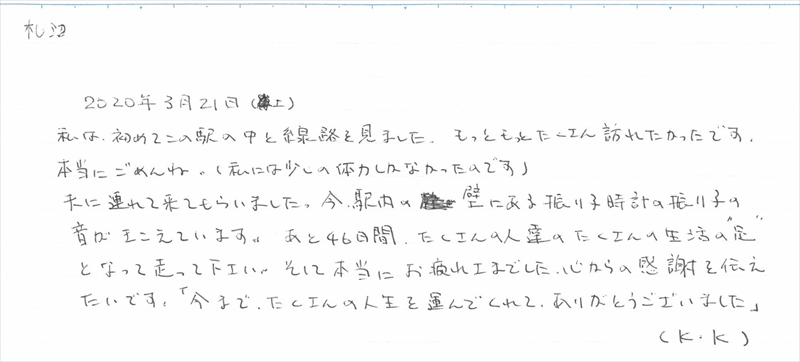 札沼
2020年3月21日(土)
私は、初めてこの駅の中と線路を見ました。もっともっとたくさん訪れたかったです。
本当にごめんね。(私には少しの体力しかなかったのです)
夫に連れて来てもらいました。今、駅内の壁にある振り子時計の振り子の
音がきこえています。あと46日間、たくさんの人達のたくさんの生活の"足"
となって走って下さい。そして本当にお疲れさまでした。心からの感謝を伝え
たいです。「今まで、たくさんの人生を運んでくれて、ありがとうございました」
(K.K)